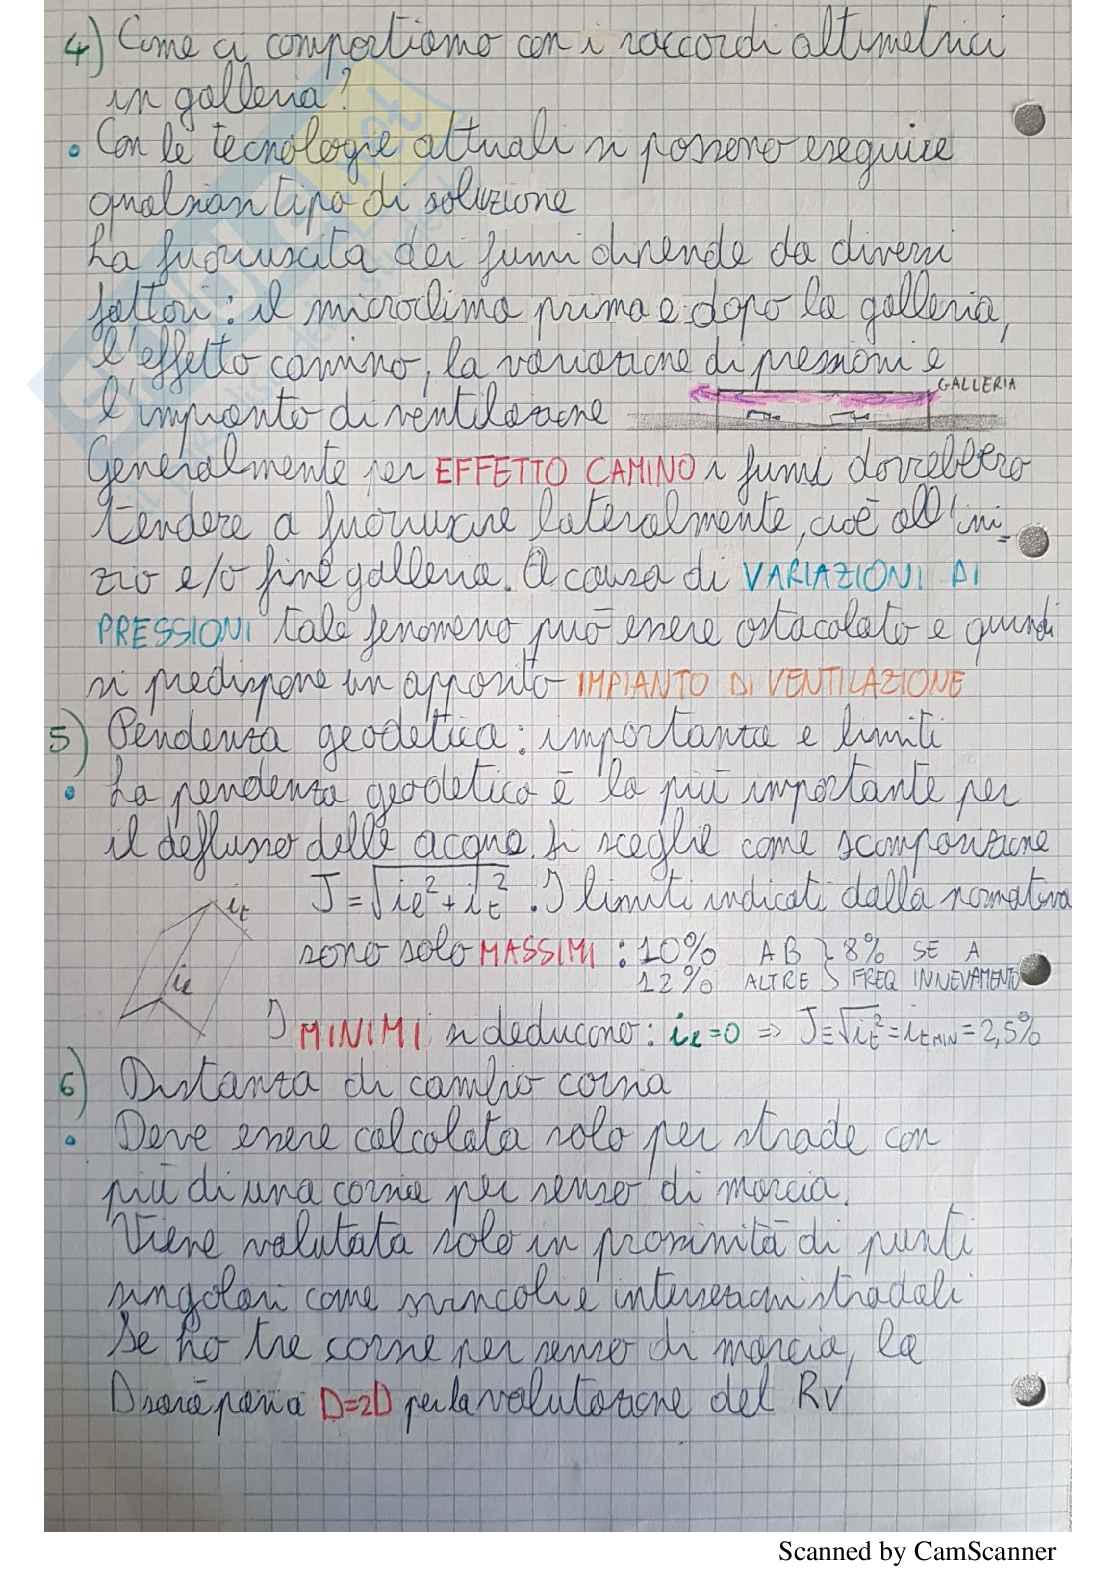 4) Come ci comportiamo con i raccordi altimetrici
in galleria?
• Con le tecnologie attuali si possono eseguire
qualsiasi tipo di soluzione
La fuoriuscita dei fumi dipende da diversi
fattori: il microclima prima e dopo la galleria,
l'effetto camino, la variazione di pressioni e
GALLERIA
l'impianto di ventilazione
Generalmente per EFFETTO CAMINO i fumi dovrebbero
tendere a fuoriuscire lateralmente, cioè all'ini-
zio e/o fine galleria. A causa di VARIAZIONI DI
PRESSIONI tale fenomeno può essere ostacolato e quindi
si predispone un apposito IMPIANTO DI VENTILAZIONE
5) Pendenza geodetica: importanza e limiti
• La pendenza geodetica è la più importante per
il deflusso delle acque. Si sceglie come scomposizione
J=√il²+it² . I limiti indicati dalla normativa
it
sono solo MASSIMI : 10% AB } 8% SE A
12% ALTRE } FREQ INNEVAMENTO
il
I MINIMI si deducono: il=0 => J=√it²=it MIN=2,5%
6) Distanza di cambio corsia
• Deve essere calcolata solo per strade con
più di una corsia per senso di marcia.
Viene valutata solo in prossimità di punti
singolari come svincoli e intersezioni stradali
Se ho tre corsie per senso di marcia, la
D sarà pari a D=2D per la valutazione del Rv
Scanned by CamScanner